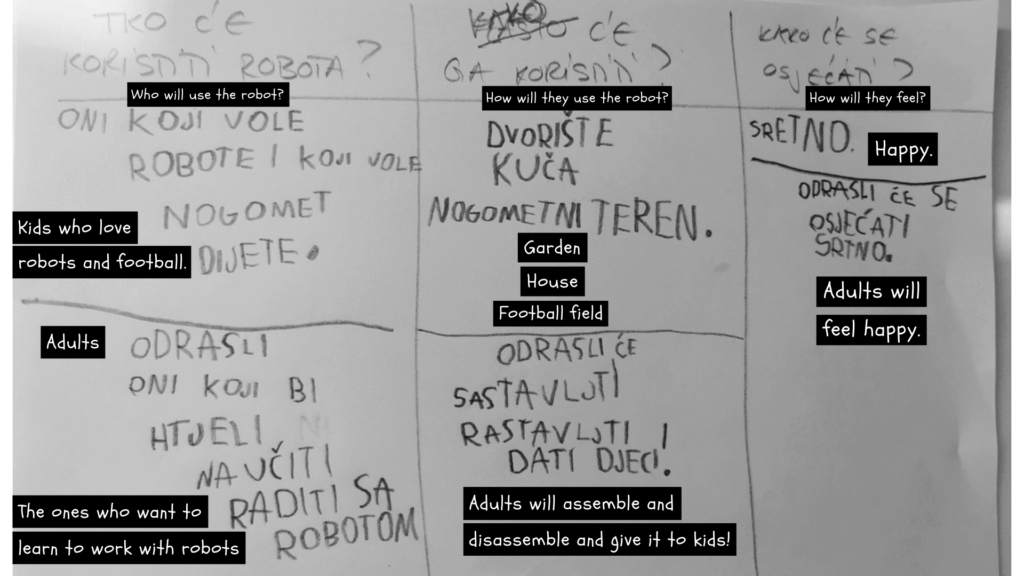 TKO ĆE
KORISTITI ROBOTA?
Who will use the robot?
ONI KOJI VOLE
ROBOTE I KOJI VOLE
NOGOMET
DIJETE.
Kids who love
robots and football.
Adults
ODRASLI
ONI KOJI BI
HTJELI
NAUČITI
RADITI SA
ROBOTOM
The ones who want to
learn to work with robots
KAKO ĆE
GA KORISTITI?
How will they use the robot?
DVORIŠTE
KUČA
NOGOMETNI TEREN.
Garden
House
Football field
ODRASLI ĆE
SASTAVLJTI
RASTAVLJTI I
DATI DJECI.
Adults will assemble and
disassemble and give it to kids!
KAKO ĆE SE
OSJEĆATI?
How will they feel?
SRETNO.
Happy.
ODRASLI ĆE SE
OSJEĆATI
SRTNO.
Adults will
feel happy.